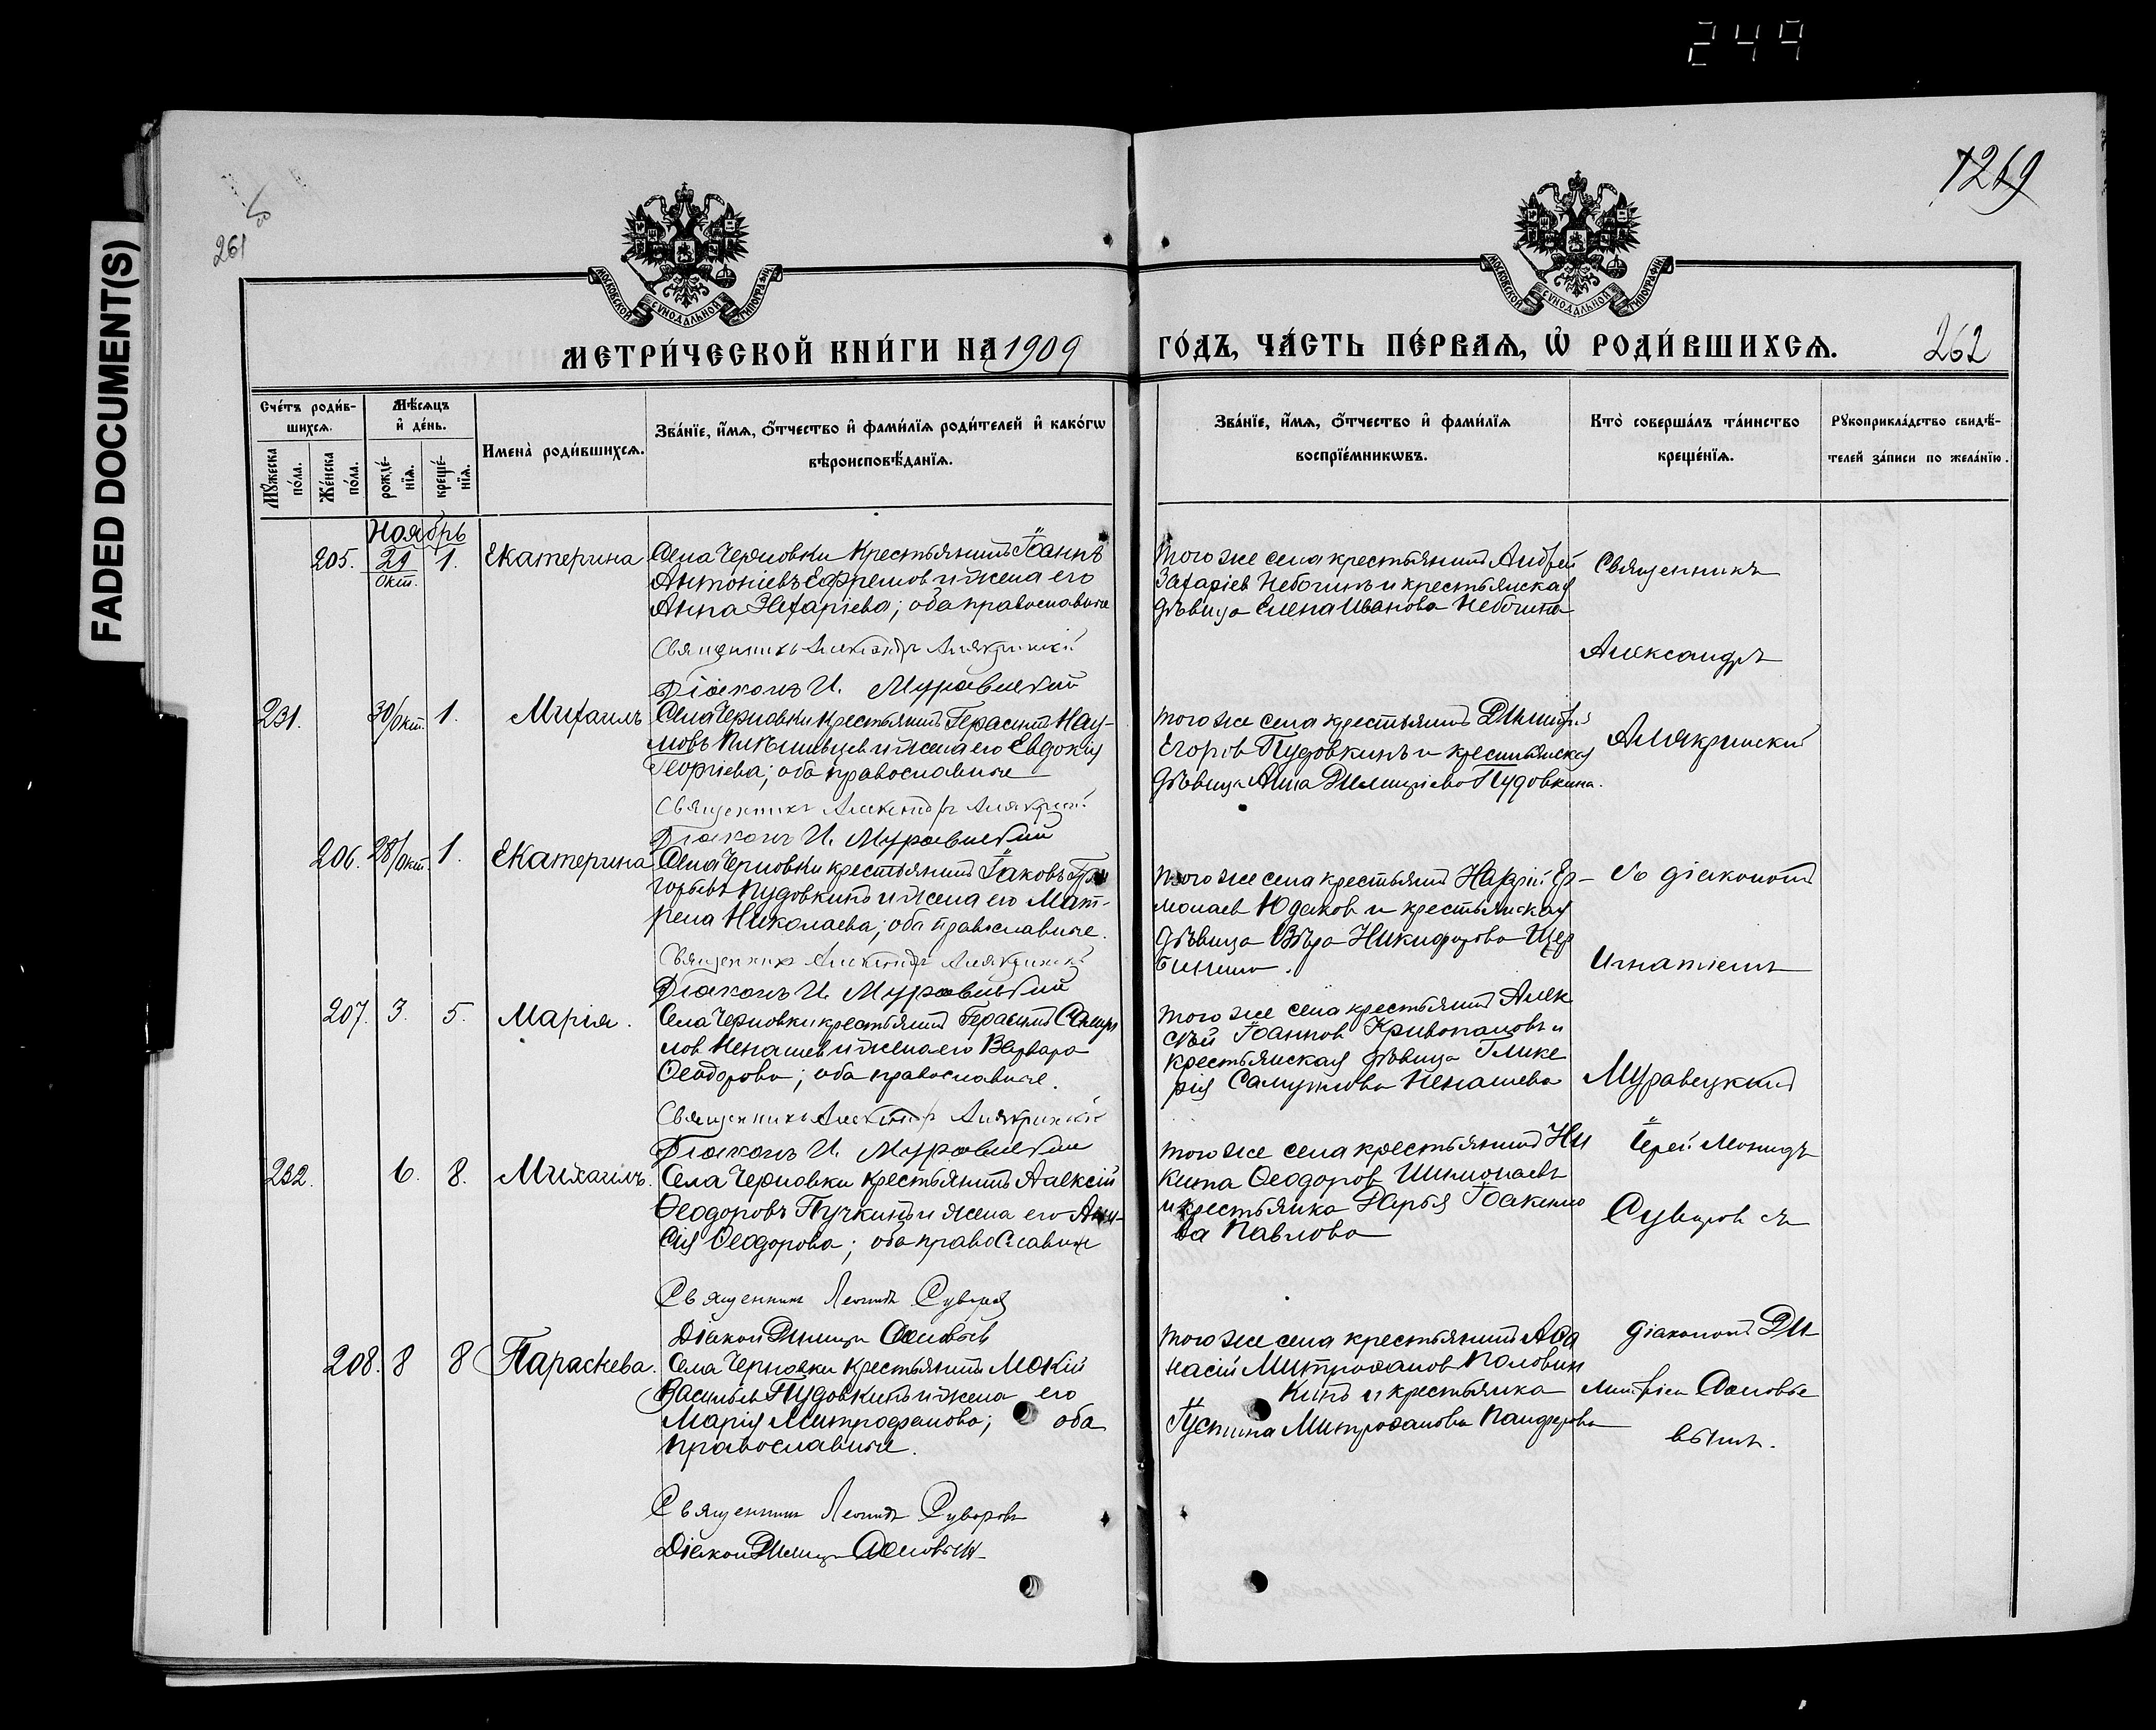 249
FADED DOCUMENT(S)
261
1269
МОСКОВСКОЙ СѴНОДАЛЬНОЙ ТИПОГРАФІИ
МОСКОВСКОЙ СѴНОДАЛЬНОЙ ТИПОГРАФІИ
МЕТРИ́ЧЕСКОЙ КНИ́ГИ НА 1909
ГО́ДЪ, ЧА́СТЬ ПЕ́РВАѦ, Ѡ҆ РОДИ́ВШИХСѦ.
262
Сче́тъ роди́в-
шихсѧ.
Му́жеска по́ла.
Же́нска по́ла.
Мѣ́сѧцъ
и҆ де́нь.
рожде́-
нїѧ.
креще́-
нїѧ.
Имена̀ роди́вшихсѧ.
Зва́нїе, и҆́мѧ, ѻ҆́тчество и҆ фами́лїѧ роди́телей и҆ како́гѡ
вѣроисповѣ́данїѧ.
Зва́нїе, и҆́мѧ, ѻ҆́тчество и҆ фами́лїѧ
воспрїе́мникѡвъ.
Кто̀ соверша́лъ та́инство
креще́нїѧ.
Рꙋкоприкла́дство свидѣ́-
телей за́писи по жела́нїю.
Ноябрь
205. 29 Окт. 1. Екатерина
Села Черновки крестьянинъ Іоаннъ
Антоніевъ Ефремов и жена его
Анна Захаріева; оба православные
Священникъ Александръ Алякринскій
Діаконъ И. Муравецкій
того же села крестьянинъ Андрей
Захаріев Небогинъ и крестьянская
дѣвица Елена Иванова Небогина
Священникъ
Александръ
231. 30/Окт. 1. Михаилъ
Села Черновки крестьянинъ Герасимъ Нау-
мовъ и жена его Евдокія
Георгіева; оба православные
Священникъ Александръ Алякринскій
Діаконъ И. Муравецкій
того же села крестьянинъ Димитрій
Егоров Пудовкинъ и крестьянская
дѣвица Анна Димитріева Пудовкина.
Алякринский
206. 28/Окт. 1. Екатерина
Села Черновки крестьянинъ Іаковъ Гри
горьевъ Пудовкинъ и жена его Мат-
рена Николаева; оба православные.
Священникъ Александръ Алякринскій
Діаконъ И. Муравецкій
того же села крестьянинъ Ер-
молаев Юдаков и крестьянская
дѣвица Вѣра Никифорова Щер
бинина.
съ діакономъ
Игнатіемъ
207. 3. 5. Марія.
Села Черновки крестьянинъ Герасимъ Самуи
лов Ненашев и жена его Варвара
Ѳеодорова; оба православные.
Священникъ Александръ Алякринскій
Діаконъ И. Муравецкій
того же села крестьянинъ Алек
сѣй Іоаннов Кривопаловъ и
крестьянская дѣвица Глике
рія Самуилова Ненашева
Муравецкий
232. 6. 8. Михаилъ.
Села Черновки крестьянинъ Алексій
Ѳеодоровъ Пучкинъ и жена его Ани-
сія Ѳеодорова; оба православные
Священникъ Леонидъ Суворов
Діакон Димитр Соловьев
того же села крестьянинъ Ни
кита Ѳеодоров Шилопаевъ
и крестьянка Дарья Іоакимо
ва Павлова
Іерей Леонидъ
Суворовъ съ
208. 8 8 Параскева.
Села Черновки крестьянинъ Мокій
Васильев Пудовкинъ и жена его
Марія Митрофанова; оба
православные.
Священникъ Леонидъ Суворовъ
Діакон Димитр Соловьевъ
того же села крестьянинъ Аѳа
насій Митрофанов Половин
кинъ и крестьянка
Іустина Митрофанова Панферова
діакономъ Ди-
митріем Соловье
вымъ.